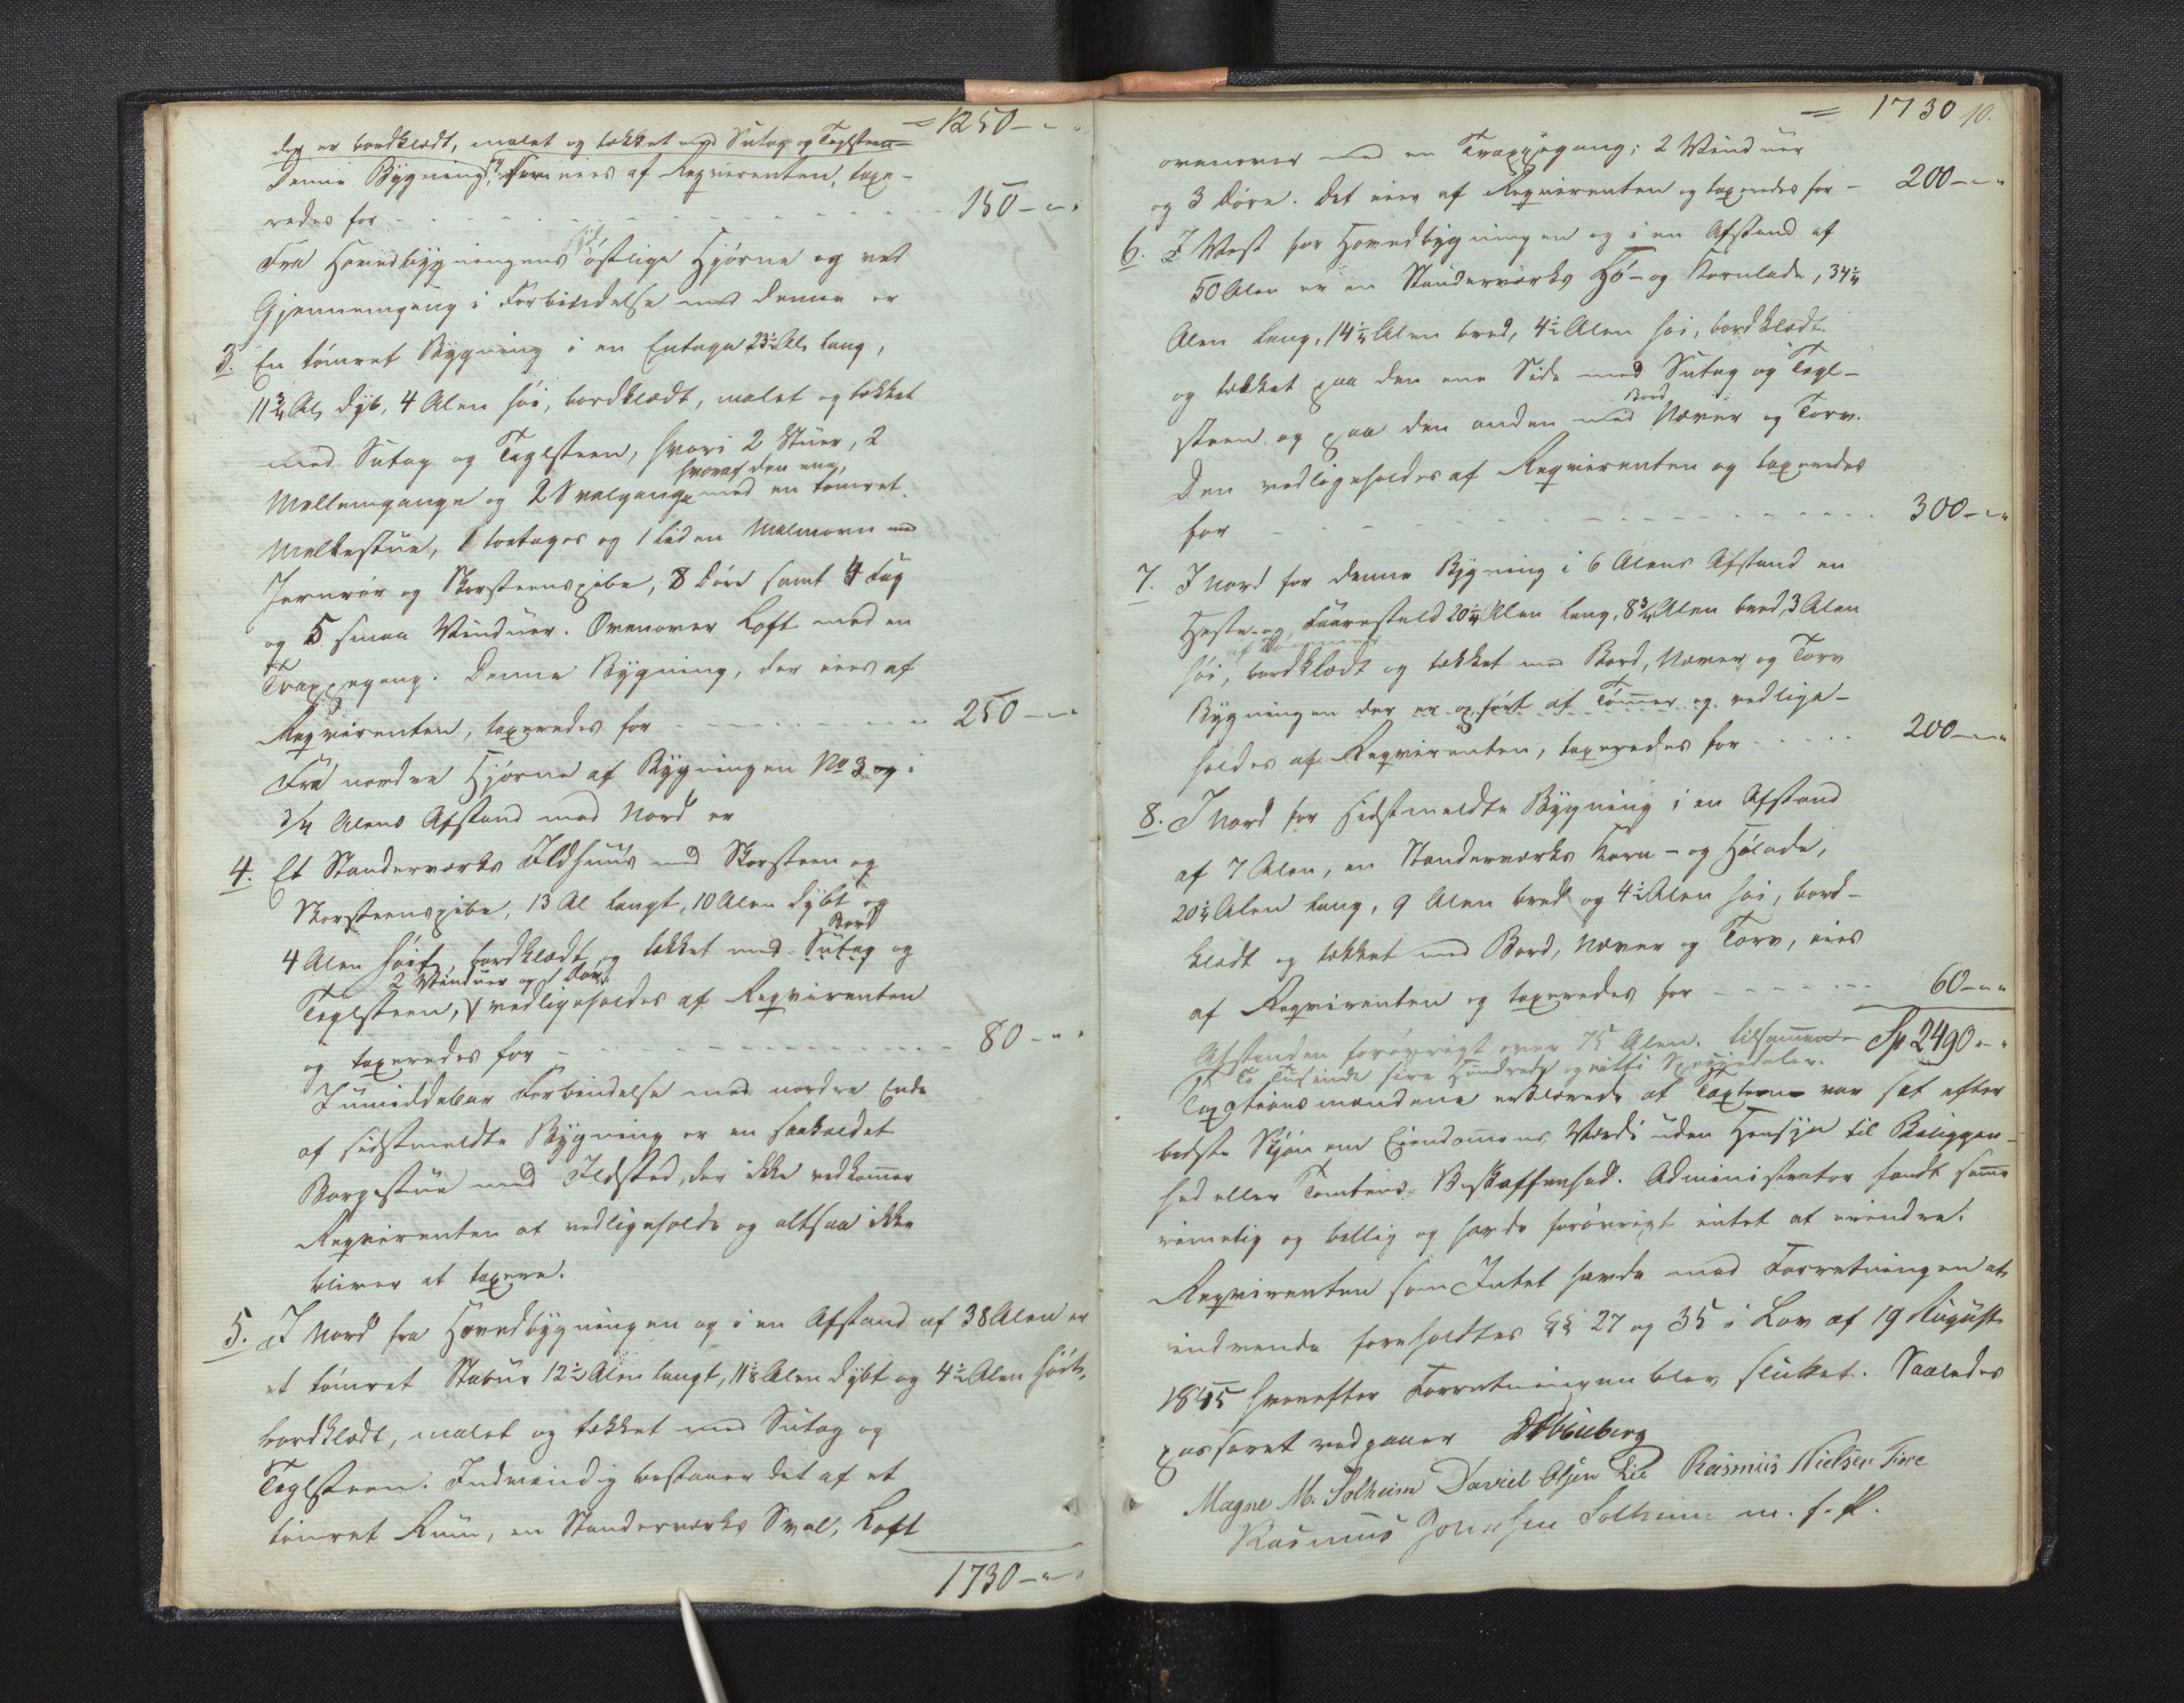 = 1250 - " "
der er bordklædt, malet og tækket med Sutag og Teglsteen
Denne Bygning, som eies af Reqvirenten, taxe-
redes for - - - 150 - " "
Fra Hovedbygningens syd østlige Hjørne og ved
Gjennemgang i Forbindelse med denne er
3. En tømret Bygning i en Etage 23½ Al. lang,
11¾ Al. dyb, 4 Alen høi, bordklædt, malet og tækket
med Sutag og Teglsteen, hvori 2 Stuer, 2
hvoraf den ene,
Mellemgange og 2 Svalgange med en tømret
Melkestue, 1 toetages og 1 liden Malmovn med
Jernrør og Skorsteenspibe, 8 Døre samt 4 Fag
og 5 smaa Vinduer. Ovenover Loft med en
Trappegang. Denne Bygning, der eies af
Reqvirenten, taxeredes for - - - 250 - " "
Fra nordre Hjørne af Bygningen No 3 og i
3/4 Alens Afstand mod Nord er
4. Et Standerværks Ildhuus med Skorsteen og
Skorsteenspibe, 13 Al langt, 10 Alen dybt og
Bord
4 Alen høit, bordklædt og tækket med Sutag og
2 Vinduer og 1 Dør.
Teglsteen, vedligeholdes af Reqvirenten
og taxeredes for - - - 80 - " "
I umiddelbar Forbindelse med nordre Ende
af sidstmeldte Bygning er en saakaldet
Borgestue med Ildsted, der ikke vedkommer
Reqvirenten at vedligeholde og altsaa ikke
bliver at taxere.
5. I Nord fra Hovedbygningen og i en Afstand af 38 Alen er
et tømret Stabur 12½ Alen langt, 11⅛ Alen dybt og 4½ Alen høit,
bordklædt, malet og tækket med Sutag og
Teglsteen. Indvendig bestaaer det af et
tømret Rum, en Standerværks Sval, Loft
1730 - " "
= 1730 10.
ovenover med en Trappegang; 2 Vinduer
og 3 Døre. Det eies af Reqvirenten og taxeredes for - 200 - " "
6. I Vest for Hovedbygningen og i en Afstand af
50 Alen er en Standerværks Hø- og Kornlade, 34¼
Alen lang, 14¼ Alen bred, 4½ Alen høi, bordklædt
og tækket paa den ene Side med Sutag og Tegl-
Bord
steen og paa den anden med Næver og Torv.
Den vedligeholdes af Reqvirenten og taxeredes
for - - - 300 - " "
7. I Nord for denne Bygning i 6 Alens Afstand en
Heste- og Faarestald 20¼ Alen lang, 8¾ Alen bred, 3 Alen
af Tømmer
høi, bordklædt og tækket med Bord, Næver og Torv
Bygningen der er opført af Tømmer og vedlige-
holdes af Reqvirenten, taxeredes for - - - 200 - " "
8. I Nord for sidstmeldte Bygning i en Afstand
af 7 Alen, en Standerværks Korn- og Hølade,
20¼ Alen lang, 9 Alen bred og 4½ Alen høi, bord-
klædt og tækket med Bord, Næver og Torv, eies
af Reqvirenten og taxeredes for - - - 60 - " "
Afstanden forøvrigt over 75 Alen. tilsammen Sp 2490 " "
To Tusinde fire Hundrede og nitti Speciedaler.
Taxationsmændene erklærede at Taxterne var sat efter
bedste Skjøn om Eiendommens Værdi uden Hensyn til Beliggen-
hed eller Tomtens Beskaffenhed. Administrator fandt samme
rimelig og billig og havde forøvrigt intet at erindre.
Reqvirenten som Intet havde mod Forretningen at
indvende foreholdtes §§ 27 og 35 i Lov af 19 August
1845 hvorefter Forretningen blev sluttet. Saaledes
passeret vedgaaer
Magne M. Solheim David Olsen Lie Rasmus Nielsen
Rasmus Solheim m. f. P.